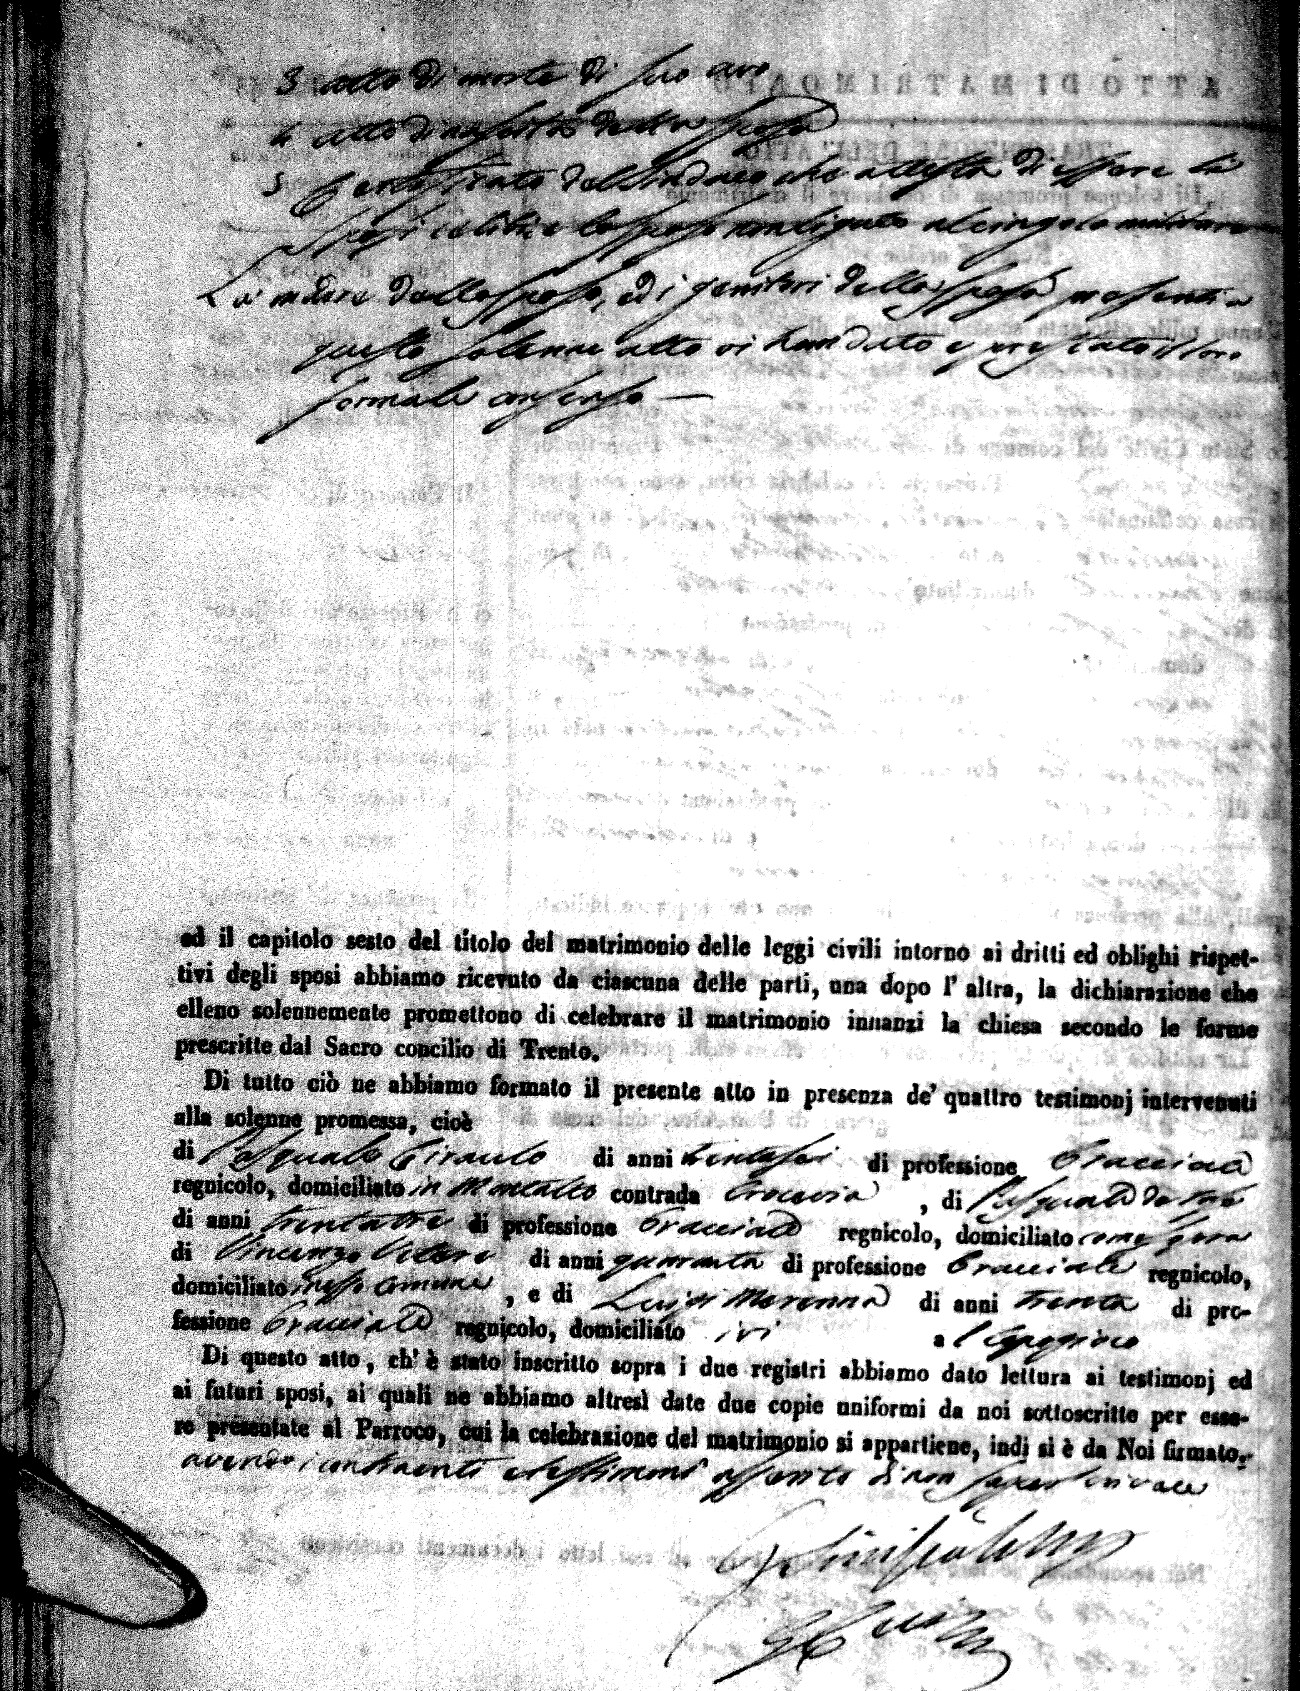 3 atto di morte di suo avo
4 atto di nascita della sposa
5 Certificato del Sindaco che attesta di essere li
sposi celibi e lo sposo non ligato al cingolo militare
La madre dello sposo, ed i genitori della sposa presenti a
questo solenne atto vi han dato e prestato il loro
formale consenso —
ed il capitolo sesto del titolo del matrimonio delle leggi civili intorno ai dritti ed oblighi rispet-
tivi degli sposi abbiamo ricevuto da ciascuna delle parti, una dopo l' altra, la dichiarazione che
elleno solennemente promettono di celebrare il matrimonio innanzi la chiesa secondo le forme
prescritte dal Sacro concilio di Trento.
Di tutto ciò ne abbiamo formato il presente atto in presenza de' quattro testimonj intervenuti
alla solenne promessa, cioè
di Pasquale Ciraulo di anni trentasei di professione Bracciale
regnicolo, domiciliato in Montalto contrada Crocevia , di Pasquale
di anni trentatre di professione Bracciale regnicolo, domiciliato come sopra
di Vincenzo di anni quaranta di professione Bracciale regnicolo,
domiciliato nello Comune , e di Luigi Morenna di anni trenta di pro-
fessione Bracciale regnicolo, domiciliato ivi a
Di questo atto, ch' è stato inscritto sopra i due registri abbiamo dato lettura ai testimonj ed
ai futuri sposi, ai quali ne abbiamo altresì date due copie uniformi da noi sottoscritte per esse-
re presentate al Parroco, cui la celebrazione del matrimonio si appartiene, indi si è da Noi firmato,
avendo i contraenti e testimoni asserito di non saper scrivere